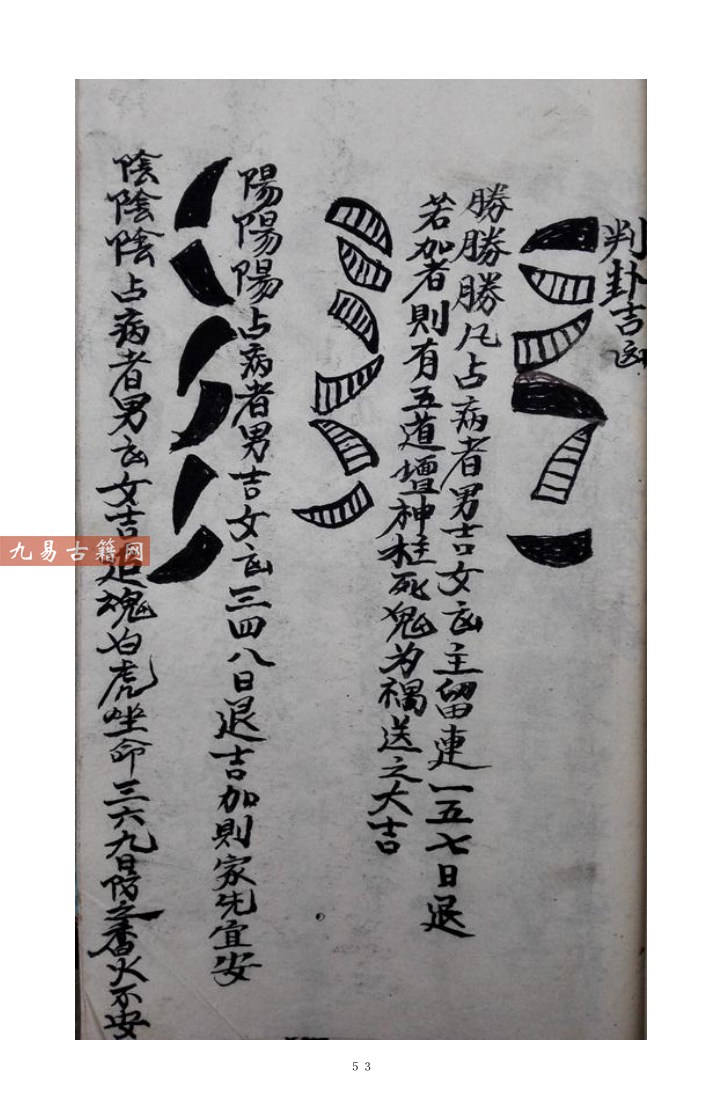 判卦吉凶
勝勝勝凡占病者男吉女凶主留連一五七日退
若加者則有五道壇神枉死鬼为禍送之大吉
陽陽陽占病者男吉女凶三四八日退吉加則家先宜安
陰陰陰占病者男凶女吉 魂白虎坐命三六九日防之香火不安
九易古籍网
53